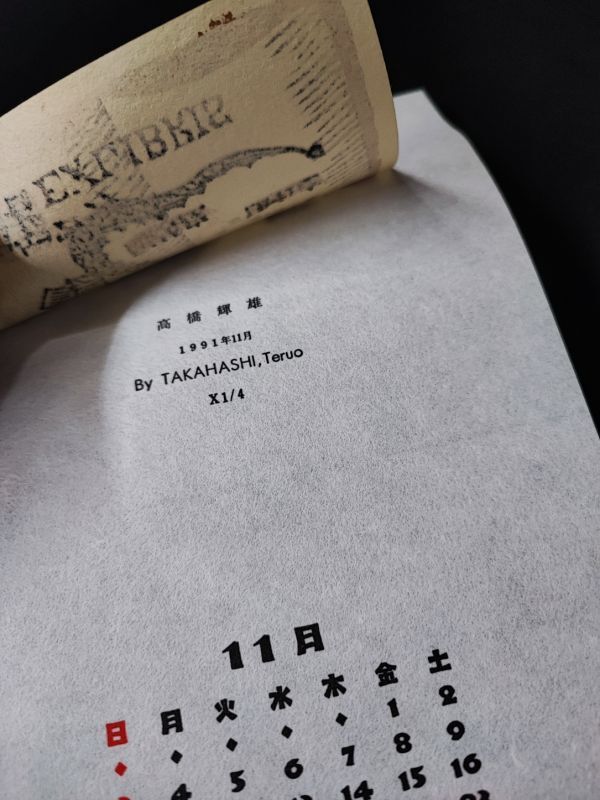 EXLIBRIS
高橋輝雄
1991年11月
By TAKAHASHI,Teruo
X1/4
11月
日 月 火 水 木 金 土
♦ ♦ ♦ ♦ ♦ 1 2
4 5 6 7 8 9
14 15 16